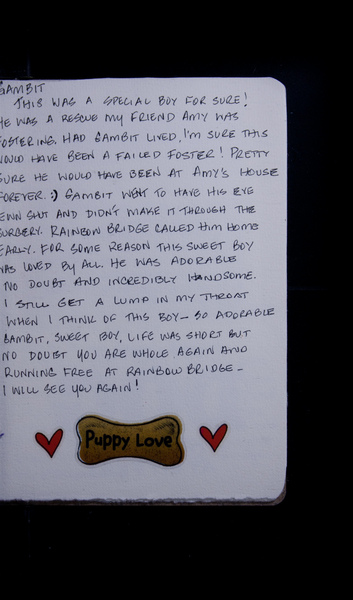 GAMBIT
THIS WAS A SPECIAL BOY FOR SURE!
HE WAS A RESCUE MY FRIEND AMY WAS
FOSTERING. HAD GAMBIT LIVED, I'M SURE THIS
WOULD HAVE BEEN A FAILED FOSTER! PRETTY
SURE HE WOULD HAVE BEEN AT AMY'S HOUSE
FOREVER. :) GAMBIT WENT TO HAVE HIS EYE
SEWN SHUT AND DIDN'T MAKE IT THROUGH THE
SURGERY. RAINBOW BRIDGE CALLED HIM HOME
EARLY. FOR SOME REASON THIS SWEET BOY
WAS LOVED BY ALL. HE WAS ADORABLE
NO DOUBT AND INCREDIBLY HANDSOME.
I STILL GET A LUMP IN MY THROAT
WHEN I THINK OF THIS BOY - SO ADORABLE
GAMBIT, SWEET BOY, LIFE WAS SHORT BUT
NO DOUBT YOU ARE WHOLE AGAIN AND
RUNNING FREE AT RAINBOW BRIDGE -
I WILL SEE YOU AGAIN!
Puppy Love